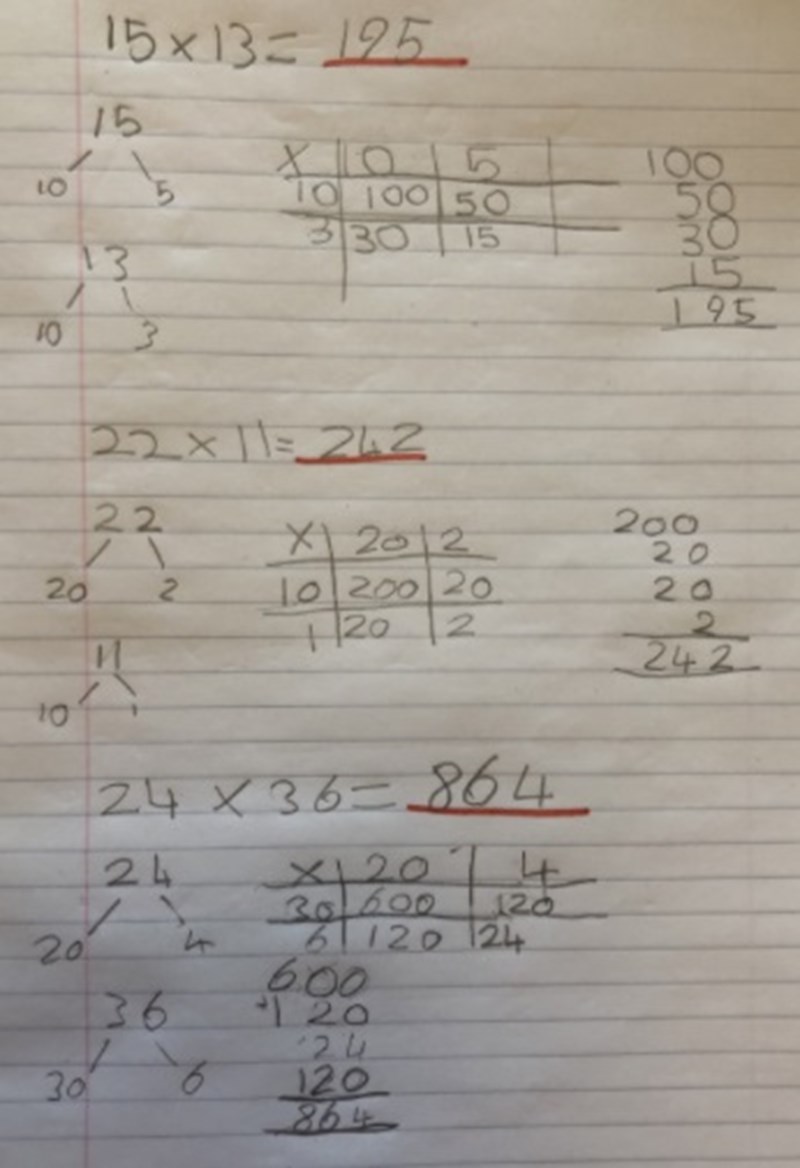 15 × 13 = 195
15
10 5
× 10 5
10 100 50
3 30 15
100
50
30
15
195
13
10 3
22 × 11 = 242
22
20 2
× 20 2
10 200 20
1 20 2
200
20
20
2
242
11
10 1
24 × 36 = 864
24
20 4
× 20 4
30 600 120
6 120 24
36
30 6
600
+120
24
120
864